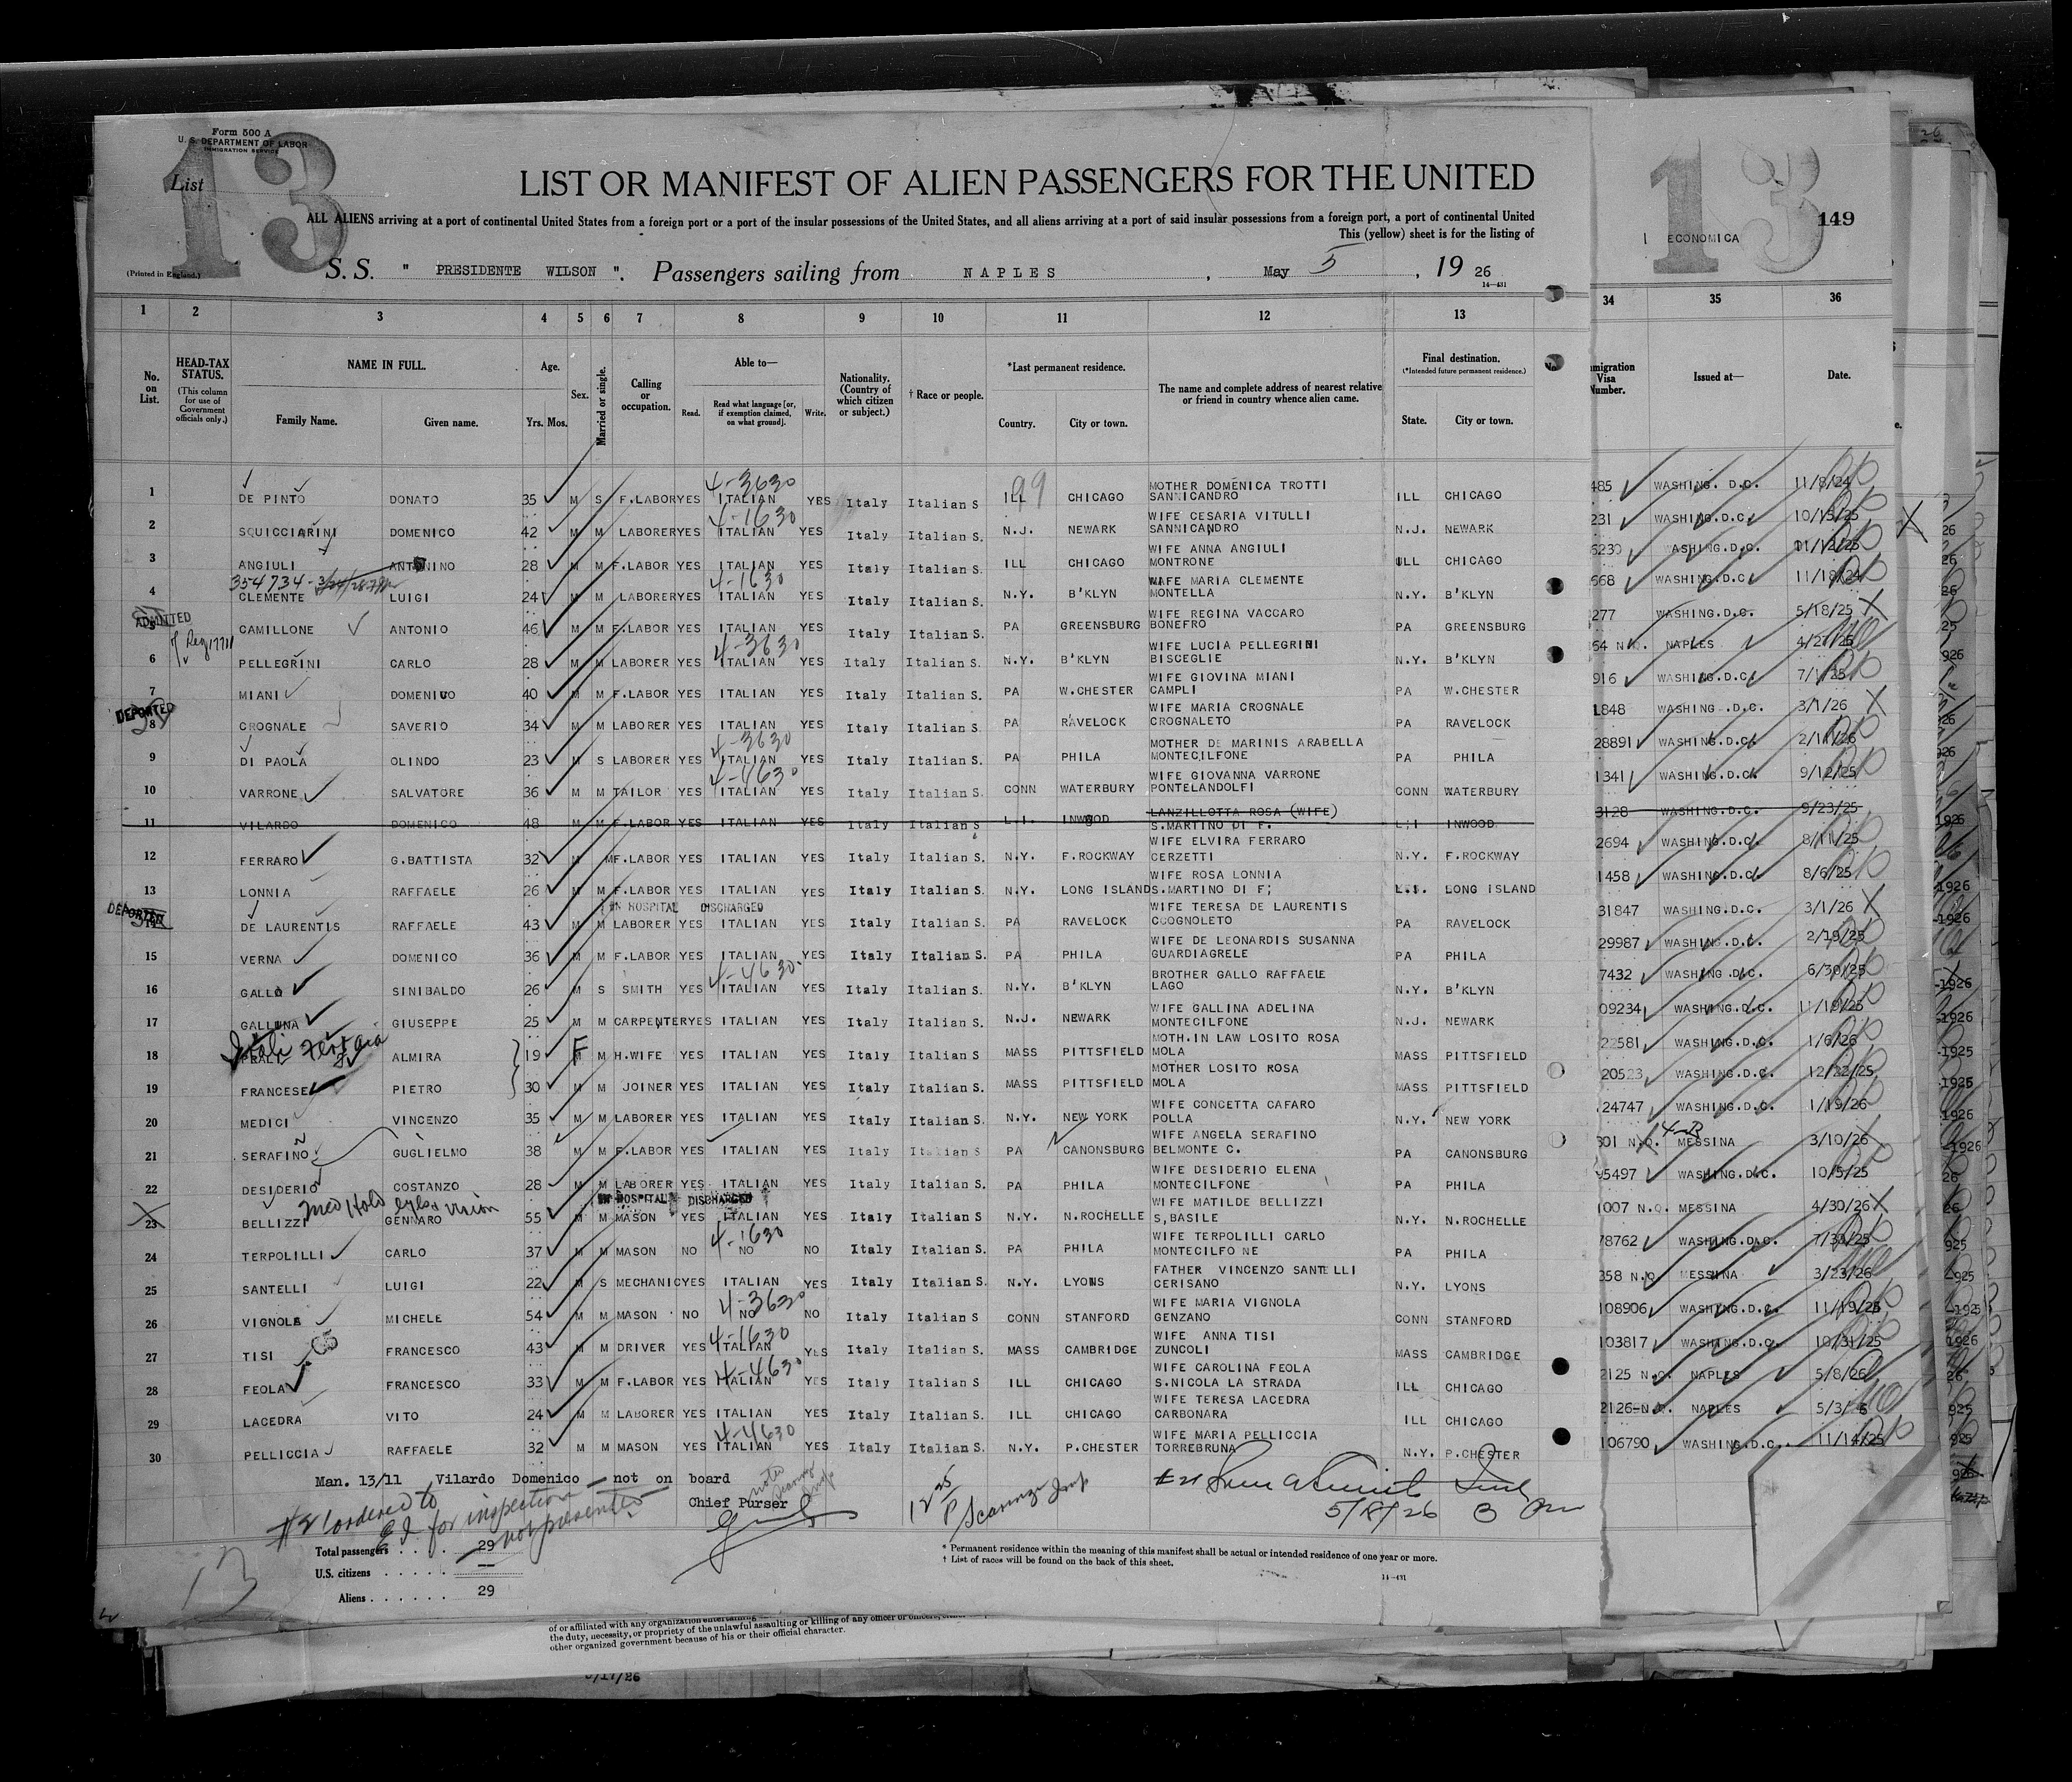 Form 500 A
U. S. DEPARTMENT OF LABOR
IMMIGRATION SERVICE
List
13
13
149
ECONOMICA
LIST OR MANIFEST OF ALIEN PASSENGERS FOR THE UNITED
ALL ALIENS arriving at a port of continental United States from a foreign port or a port of the insular possessions of the United States, and all aliens arriving at a port of said insular possessions from a foreign port, a port of continental United
This (yellow) sheet is for the listing of
(Printed in England.)
S.S. " PRESIDENTE WILSON ". Passengers sailing from NAPLES, May 5, 19 26
14—431
1 2 3 4 5 6 7 8 9 10 11 12 13 34 35 36
No. on List.
HEAD-TAX STATUS.
(This column for use of Government officials only.)
NAME IN FULL.
Family Name. Given name.
Age.
Yrs. Mos.
Sex.
Married or single.
Calling or occupation.
Able to—
Read. Read what language [or, if exemption claimed, on what ground]. Write.
Nationality. (Country of which citizen or subject.)
† Race or people.
*Last permanent residence.
Country. City or town.
The name and complete address of nearest relative or friend in country whence alien came.
Final destination.
(*Intended future permanent residence.)
State. City or town.
Visa Number.
Issued at—
Date.
99
4-3630
MOTHER DOMENICA TROTTI
1 DE PINTO DONATO 35 M S F.LABOR YES ITALIAN YES Italy Italian S ILL CHICAGO SANNICANDRO ILL CHICAGO 485 WASHING. D.C. 11/8/24
4-1630
WIFE CESARIA VITULLI
2 SQUICCIARINI DOMENICO 42 M M LABORER YES ITALIAN YES Italy Italian S. N.J. NEWARK SANNICANDRO N.J. NEWARK 231 WASHING.D.C. 10/15/25
WIFE ANNA ANGIULI
3 ANGIULI ANTONINO 28 M M F.LABOR YES ITALIAN YES Italy Italian S. ILL CHICAGO MONTRONE ILL CHICAGO 6230 WASHING.D.C. 11/12/25
354734-
4-1630
WIFE MARIA CLEMENTE
4 CLEMENTE LUIGI 24 M M LABORER YES ITALIAN YES Italy Italian S. N.Y. B'KLYN MONTELLA N.Y. B'KLYN 668 WASHING.D.C. 11/18/24
ADMITTED
WIFE REGINA VACCARO
5 CAMILLONE ANTONIO 46 M M F.LABOR YES ITALIAN YES Italy Italian S. PA GREENSBURG BONEFRO PA GREENSBURG 277 WASHING.D.C. 5/18/25 X
4-3630
WIFE LUCIA PELLEGRINI
6 PELLEGRINI CARLO 28 M M LABORER YES ITALIAN YES Italy Italian S. N.Y. B'KLYN BISCEGLIE N.Y. B'KLYN 64 N.Q. NAPLES 4/27/25
WIFE GIOVINA MIANI
7 MIANI DOMENICO 40 M M F.LABOR YES ITALIAN YES Italy Italian S. PA W.CHESTER CAMPLI PA W.CHESTER 916 WASHING.D.C. 7/1/25
DEPORTED
WIFE MARIA CROGNALE
8 CROGNALE SAVERIO 34 M M LABORER YES ITALIAN YES Italy Italian S. PA RAVELOCK CROGNALETO PA RAVELOCK 1848 WASHING.D.C. 3/1/26 X
4-3630
MOTHER DE MARINIS ARABELLA
9 DI PAOLA OLINDO 23 M S LABORER YES ITALIAN YES Italy Italian S. PA PHILA MONTECILFONE PA PHILA 28891 WASHING.D.C. 2/11/26
4-4630
WIFE GIOVANNA VARRONE
10 VARRONE SALVATORE 36 M M TAILOR YES ITALIAN YES Italy Italian S. CONN WATERBURY PONTELANDOLFI CONN WATERBURY 1341 WASHING.D.C. 9/12/25
LANZILLOTTA ROSA (WIFE)
11 VILARDO DOMENICO 48 M M F.LABOR YES ITALIAN YES Italy Italian S L.I. INWOOD S.MARTINO DI F. L.I INWOOD 3128 WASHING.D.C. 9/23/25
WIFE ELVIRA FERRARO
12 FERRARO G.BATTISTA 32 M M F.LABOR YES ITALIAN YES Italy Italian S. N.Y. F.ROCKWAY CERZETTI N.Y. F.ROCKWAY 2694 WASHING.D.C. 8/11/25
WIFE ROSA LONNIA
13 LONNIA RAFFAELE 26 M M F.LABOR YES ITALIAN YES Italy Italian S. N.Y. LONG ISLAND S.MARTINO DI F; LONG ISLAND 1458 WASHING.D.C. 8/6/25
DEPORTED
IN HOSPITAL DISCHARGED
WIFE TERESA DE LAURENTIS
14 DE LAURENTIS RAFFAELE 43 M M LABORER YES ITALIAN YES Italy Italian S. PA RAVELOCK CCOGNOLETO PA RAVELOCK 31847 WASHING.D.C. 3/1/26 X
WIFE DE LEONARDIS SUSANNA
15 VERNA DOMENICO 36 M M F.LABOR YES ITALIAN YES Italy Italian S. PA PHILA GUARDIAGRELE PA PHILA 29987 WASHING.D.C. 2/19/25
4-4630
BROTHER GALLO RAFFAELE
16 GALLO SINIBALDO 26 M S SMITH YES ITALIAN YES Italy Italian S. N.Y. B'KLYN LAGO N.Y. B'KLYN 7432 WASHING.D.C. 6/30/25
WIFE GALLINA ADELINA
17 GALLINA GIUSEPPE 25 M M CARPENTER YES ITALIAN YES Italy Italian S. N.J. NEWARK MONTECILFONE N.J. NEWARK 09234 WASHING.D.C. 11/19/25
MOTH.IN LAW LOSITO ROSA
18 ALMIRA 19 F M H.WIFE YES ITALIAN YES Italy Italian S. MASS PITTSFIELD MOLA MASS PITTSFIELD 22581 WASHING.D.C. 1/6/26
MOTHER LOSITO ROSA
19 FRANCESE PIETRO 30 M M JOINER YES ITALIAN YES Italy Italian S. MASS PITTSFIELD MOLA MASS PITTSFIELD 20523 WASHING.D.C. 12/22/25
WIFE CONCETTA CAFARO
20 MEDICI VINCENZO 35 M M LABORER YES ITALIAN YES Italy Italian S. N.Y. NEW YORK POLLA N.Y. NEW YORK 24747 WASHING.D.C. 1/19/26
WIFE ANGELA SERAFINO
21 SERAFINO GUGLIELMO 38 M M F.LABOR YES ITALIAN YES Italy Italian S PA CANONSBURG BELMONTE C. PA CANONSBURG 301 N.Q. MESSINA 3/10/26
WIFE DESIDERIO ELENA
22 DESIDERIO COSTANZO 28 M M LABORER YES ITALIAN YES Italy Italian S. PA PHILA MONTECILFONE PA PHILA 95497 WASHING.D.C. 10/5/25
Med Hold eyes, vision
IN HOSPITAL DISCHARGED
WIFE MATILDE BELLIZZI
23 BELLIZZI GENNARO 55 M M MASON YES ITALIAN YES Italy Italian S N.Y. N.ROCHELLE S,BASILE N.Y. N.ROCHELLE 1007 N.Q. MESSINA 4/30/26 X
4-1630
WIFE TERPOLILLI CARLO
24 TERPOLILLI CARLO 37 M M MASON NO NO NO Italy Italian S. PA PHILA MONTECILFO NE PA PHILA 78762 WASHING.D.C. 7/30/25
FATHER VINCENZO SANTELLI
25 SANTELLI LUIGI 22 M S MECHANIC YES ITALIAN YES Italy Italian S. N.Y. LYONS CERISANO N.Y. LYONS 358 N.Q. MESSINA 3/23/26
4-3630
WIFE MARIA VIGNOLA
26 VIGNOLA MICHELE 54 M M MASON NO NO NO Italy Italian S CONN STANFORD GENZANO CONN STANFORD 108906 WASHING.D.C. 11/19/25
4-1630
WIFE ANNA TISI
27 TISI FRANCESCO 43 M M DRIVER YES ITALIAN YES Italy Italian S MASS CAMBRIDGE ZUNCOLI MASS CAMBRIDGE 103817 WASHING.D.C. 10/31/25
4-4630
WIFE CAROLINA FEOLA
28 FEOLA FRANCESCO 33 M M F.LABOR YES ITALIAN YES Italy Italian S ILL CHICAGO S.NICOLA LA STRADA ILL CHICAGO 2125 N.Q. NAPLES 5/8/26
WIFE TERESA LACEDRA
29 LACEDRA VITO 24 M M LABORER YES ITALIAN YES Italy Italian S. ILL CHICAGO CARBONARA ILL CHICAGO 2126-N.Q. NAPLES 5/3/
4-4630
WIFE MARIA PELLICCIA
30 PELLICCIA RAFFAELE 32 M M MASON YES ITALIAN YES Italy Italian S. N.Y. P.CHESTER TORREBRUNA N.Y. P.CHESTER 106790 WASHING.D.C. 11/14/25
Man. 13/11 Vilardo Domenico — not on board
Chief Purser
#21 ordered to
E.I. for inspection
not presented
5/8/26
Total passengers . . . . 29
U.S. citizens . . . . . . —
Aliens . . . . . . 29
13
* Permanent residence within the meaning of this manifest shall be actual or intended residence of one year or more.
† List of races will be found on the back of this sheet.
14—431
the duty, necessity, or propriety of the unlawful assaulting or killing of any officer or officers,
other organized government because of his or their official character.